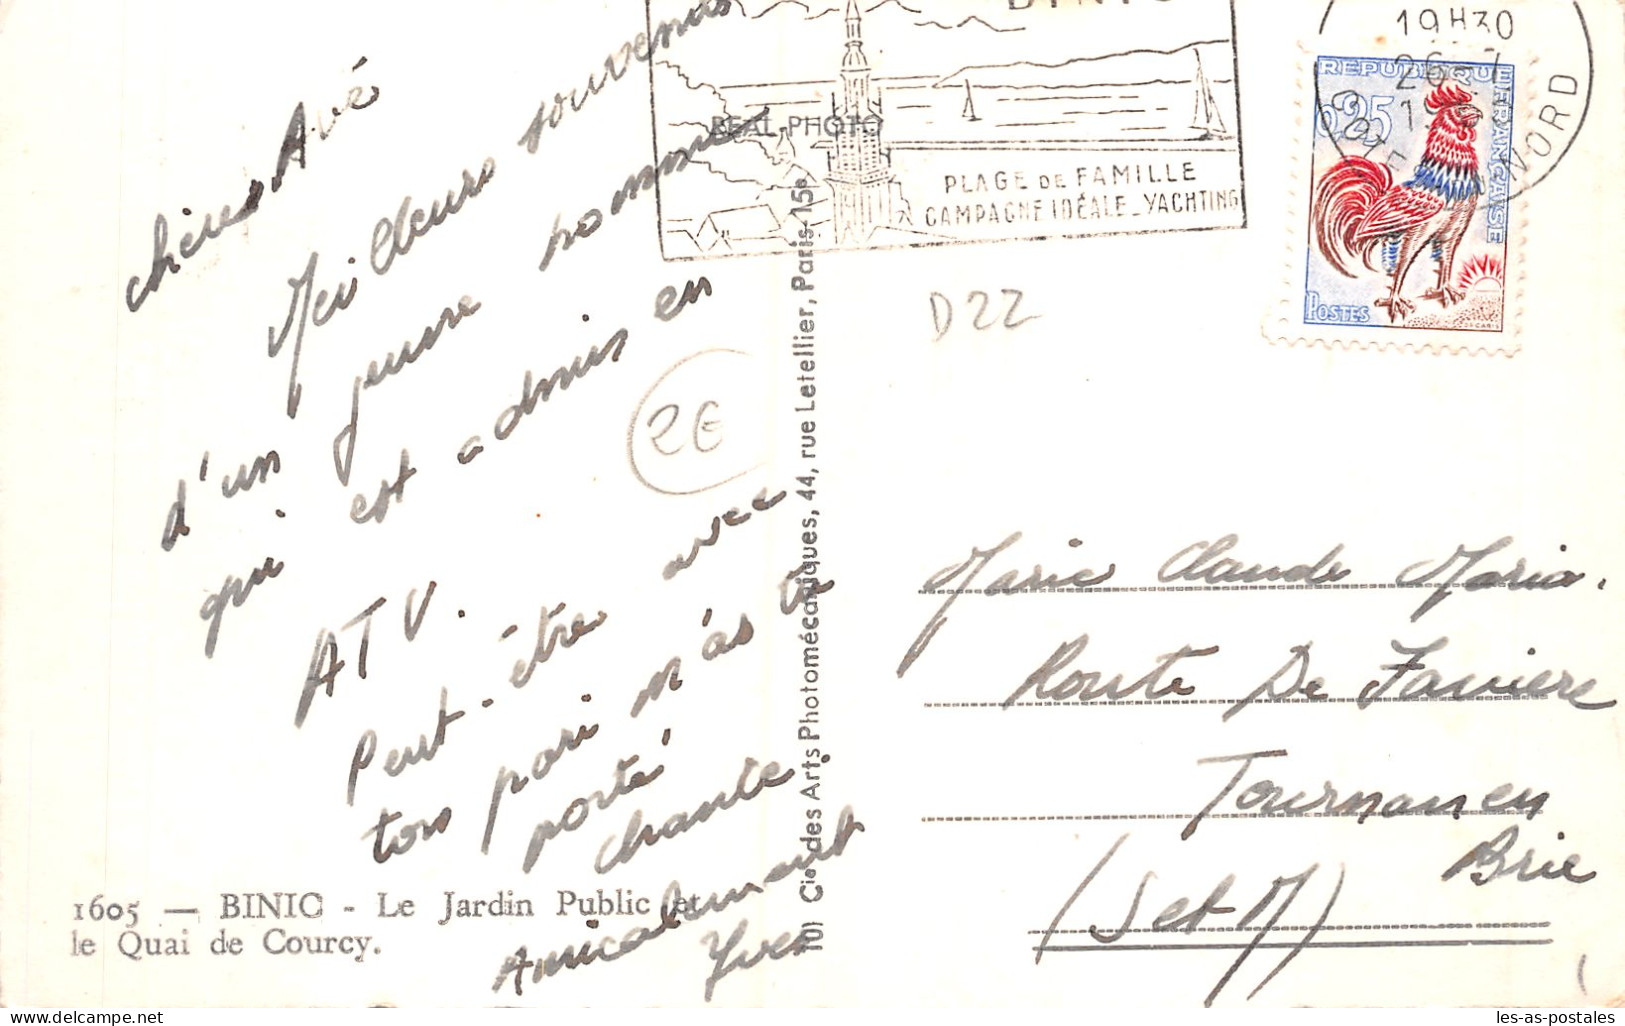 BINIC
REAL-PHOTO
PLAGE DE FAMILLE
CAMPAGNE IDÉALE - YACHTING
19H30
26-7
NORD
REPUBLIQUE FRANÇAISE
0,25
POSTES
DECARIS
D22
2€
Meilleurs souvenirs
d'un jeune homme
qui est admis en
ATV.
Peut-être avec
ton pari m'as tu
porté
chante.
Amicalement
Yves
Marie Claude Maria.
Route De Favière
Tournan en
Brie
(S et M)
101 Cie des Arts Photomécaniques, 44, rue Letellier, Paris-15e
1605 — BINIC - Le Jardin Public et
le Quai de Courcy.
les-as-postales
delcampe.net